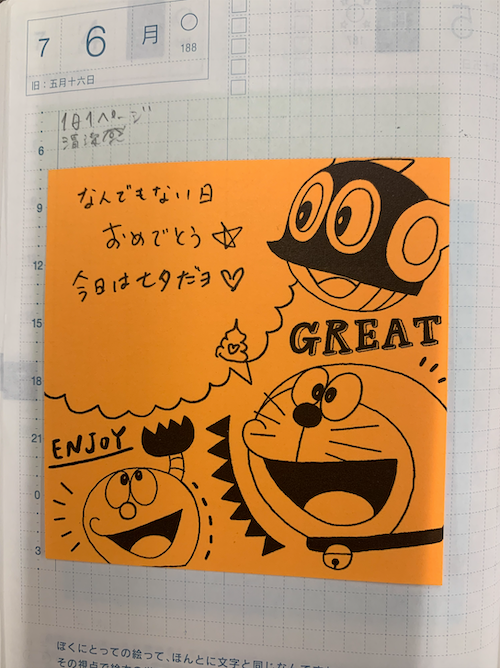 7 6 月
188
旧：五月十六日
1日1ページ
なんでもない日
おめでとう☆
今日は七夕だヨ♡
GREAT
ENJOY
6
9
12
15
18
21
0
3
ぼくにとっての絵って、ほんとに文字と同じなんで